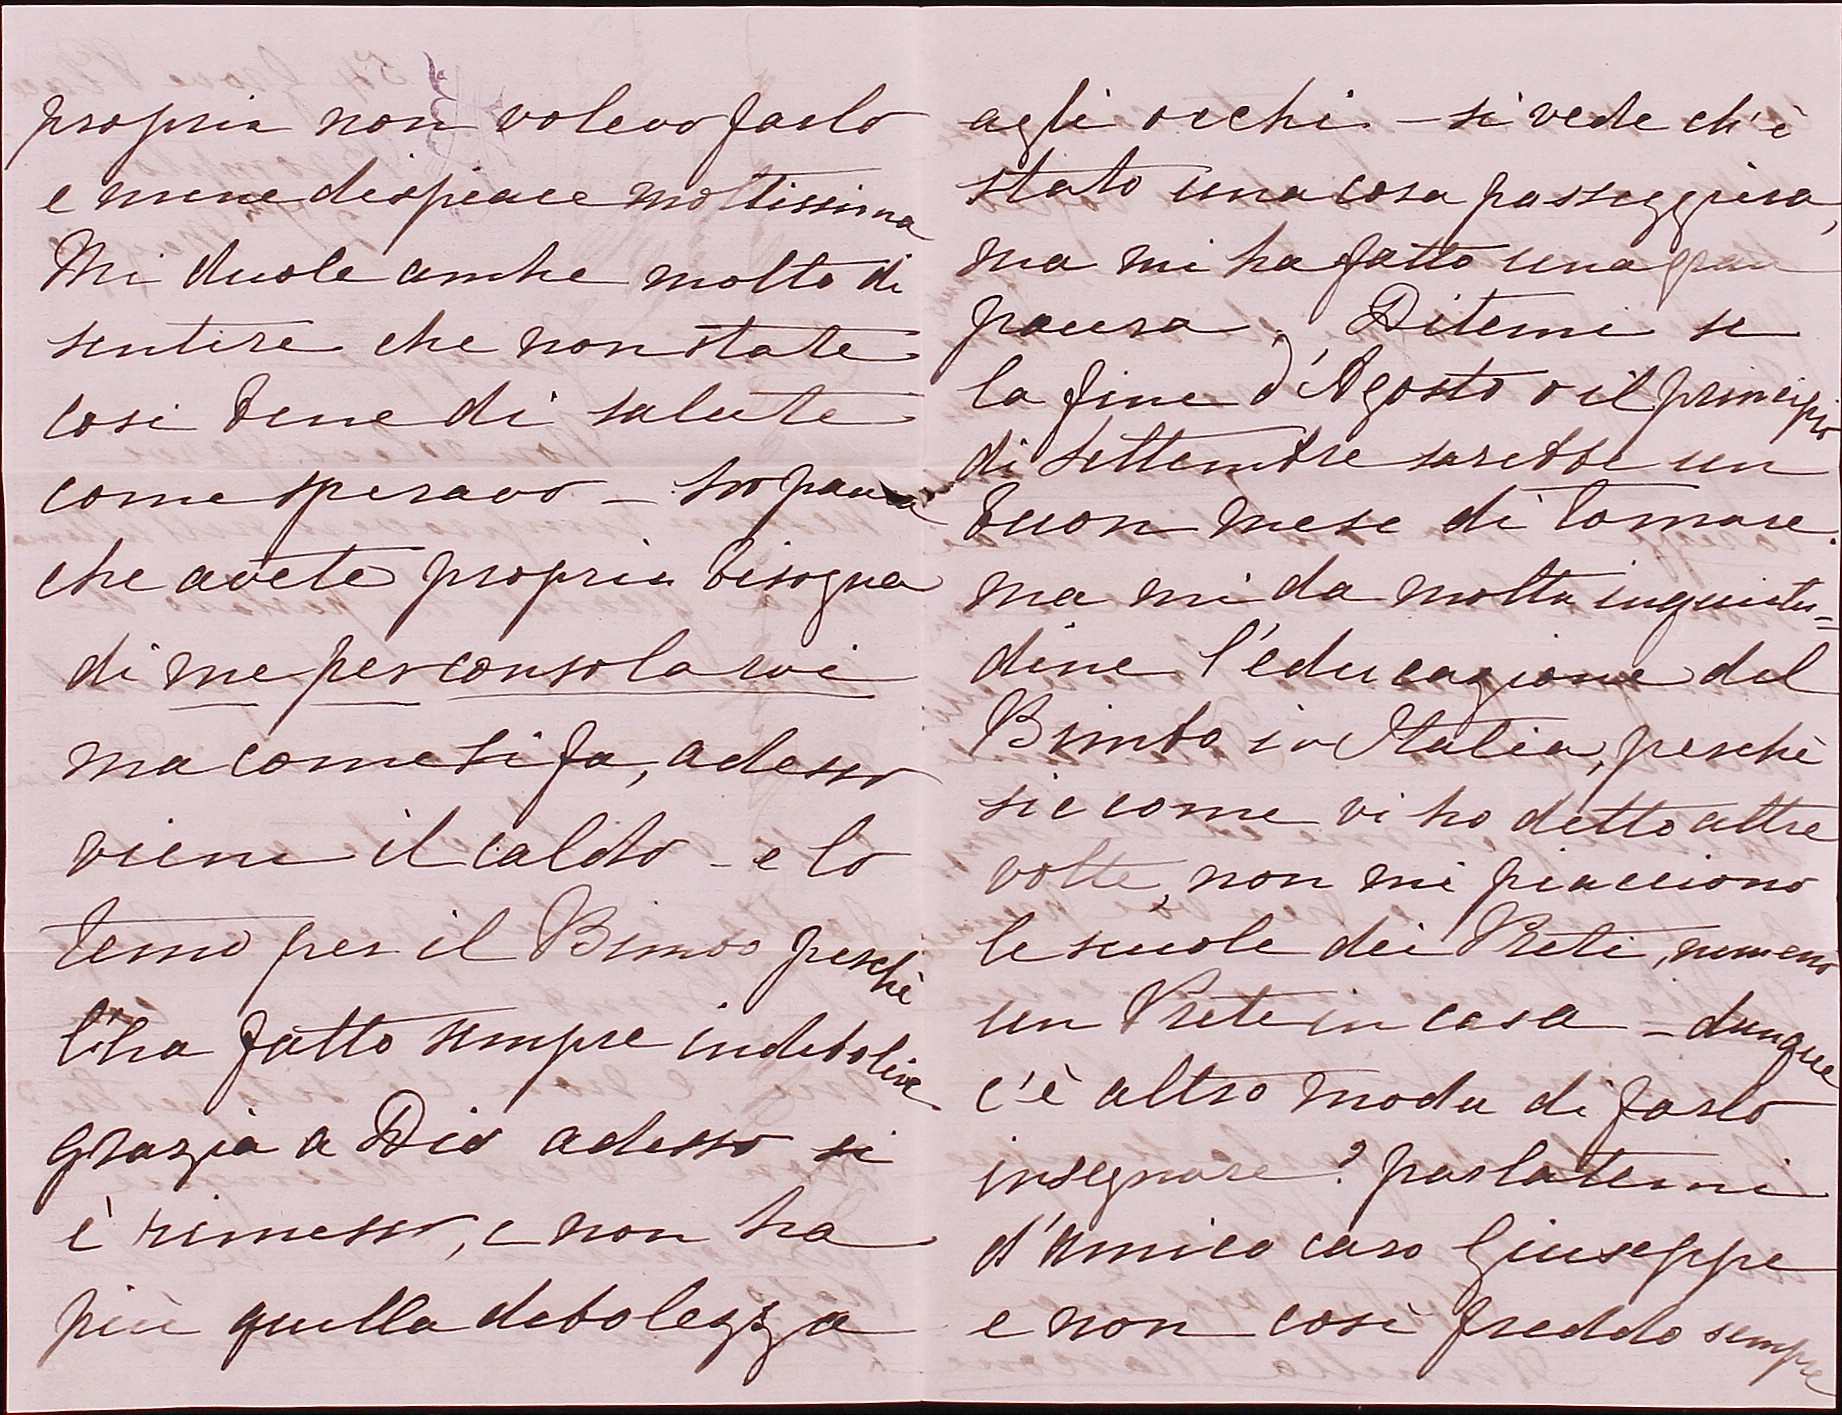 propria non volevo farlo
e mene dispiace moltissimo
Mi duole anche molto di
sentire che non state
cosi bene di salute
come speravo – ho paura
che avete proprio bisogno
di me per consolarvi
ma come si fa, adesso
viene il caldo – e lo
temo per il Bimbo perchè
l'ha fatto sempre indebolire
grazia a Dio adesso si
è rimesso, e non ha
più quella debolezza
agli occhi – si vede ch'è
stato una cosa passeggiera,
ma mi ha fatto una gran
paura. Ditemi se
la fine d'Agosto o il principio
di Settembre sarebbe un
buon mese di tornare.
ma mi da molta inquietu=
dine l'educazione del
Bimbo in Italia, perchè
siccome vi ho detto altre
volte, non mi piacciono
le scuole dei Preti, nemeno
un Prete in casa – dunque
c'è altro modo di farlo
insegnare? parlatemi
d'Amico caro Giuseppe
e non così freddo sempre